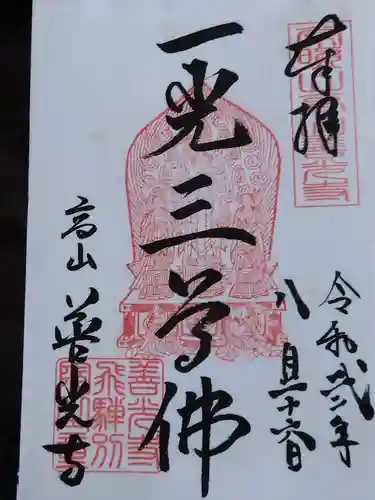 奉拝
令和弐年
八月十六日
一光三尊佛
高山善光寺
善光寺
飛騨別
院印章